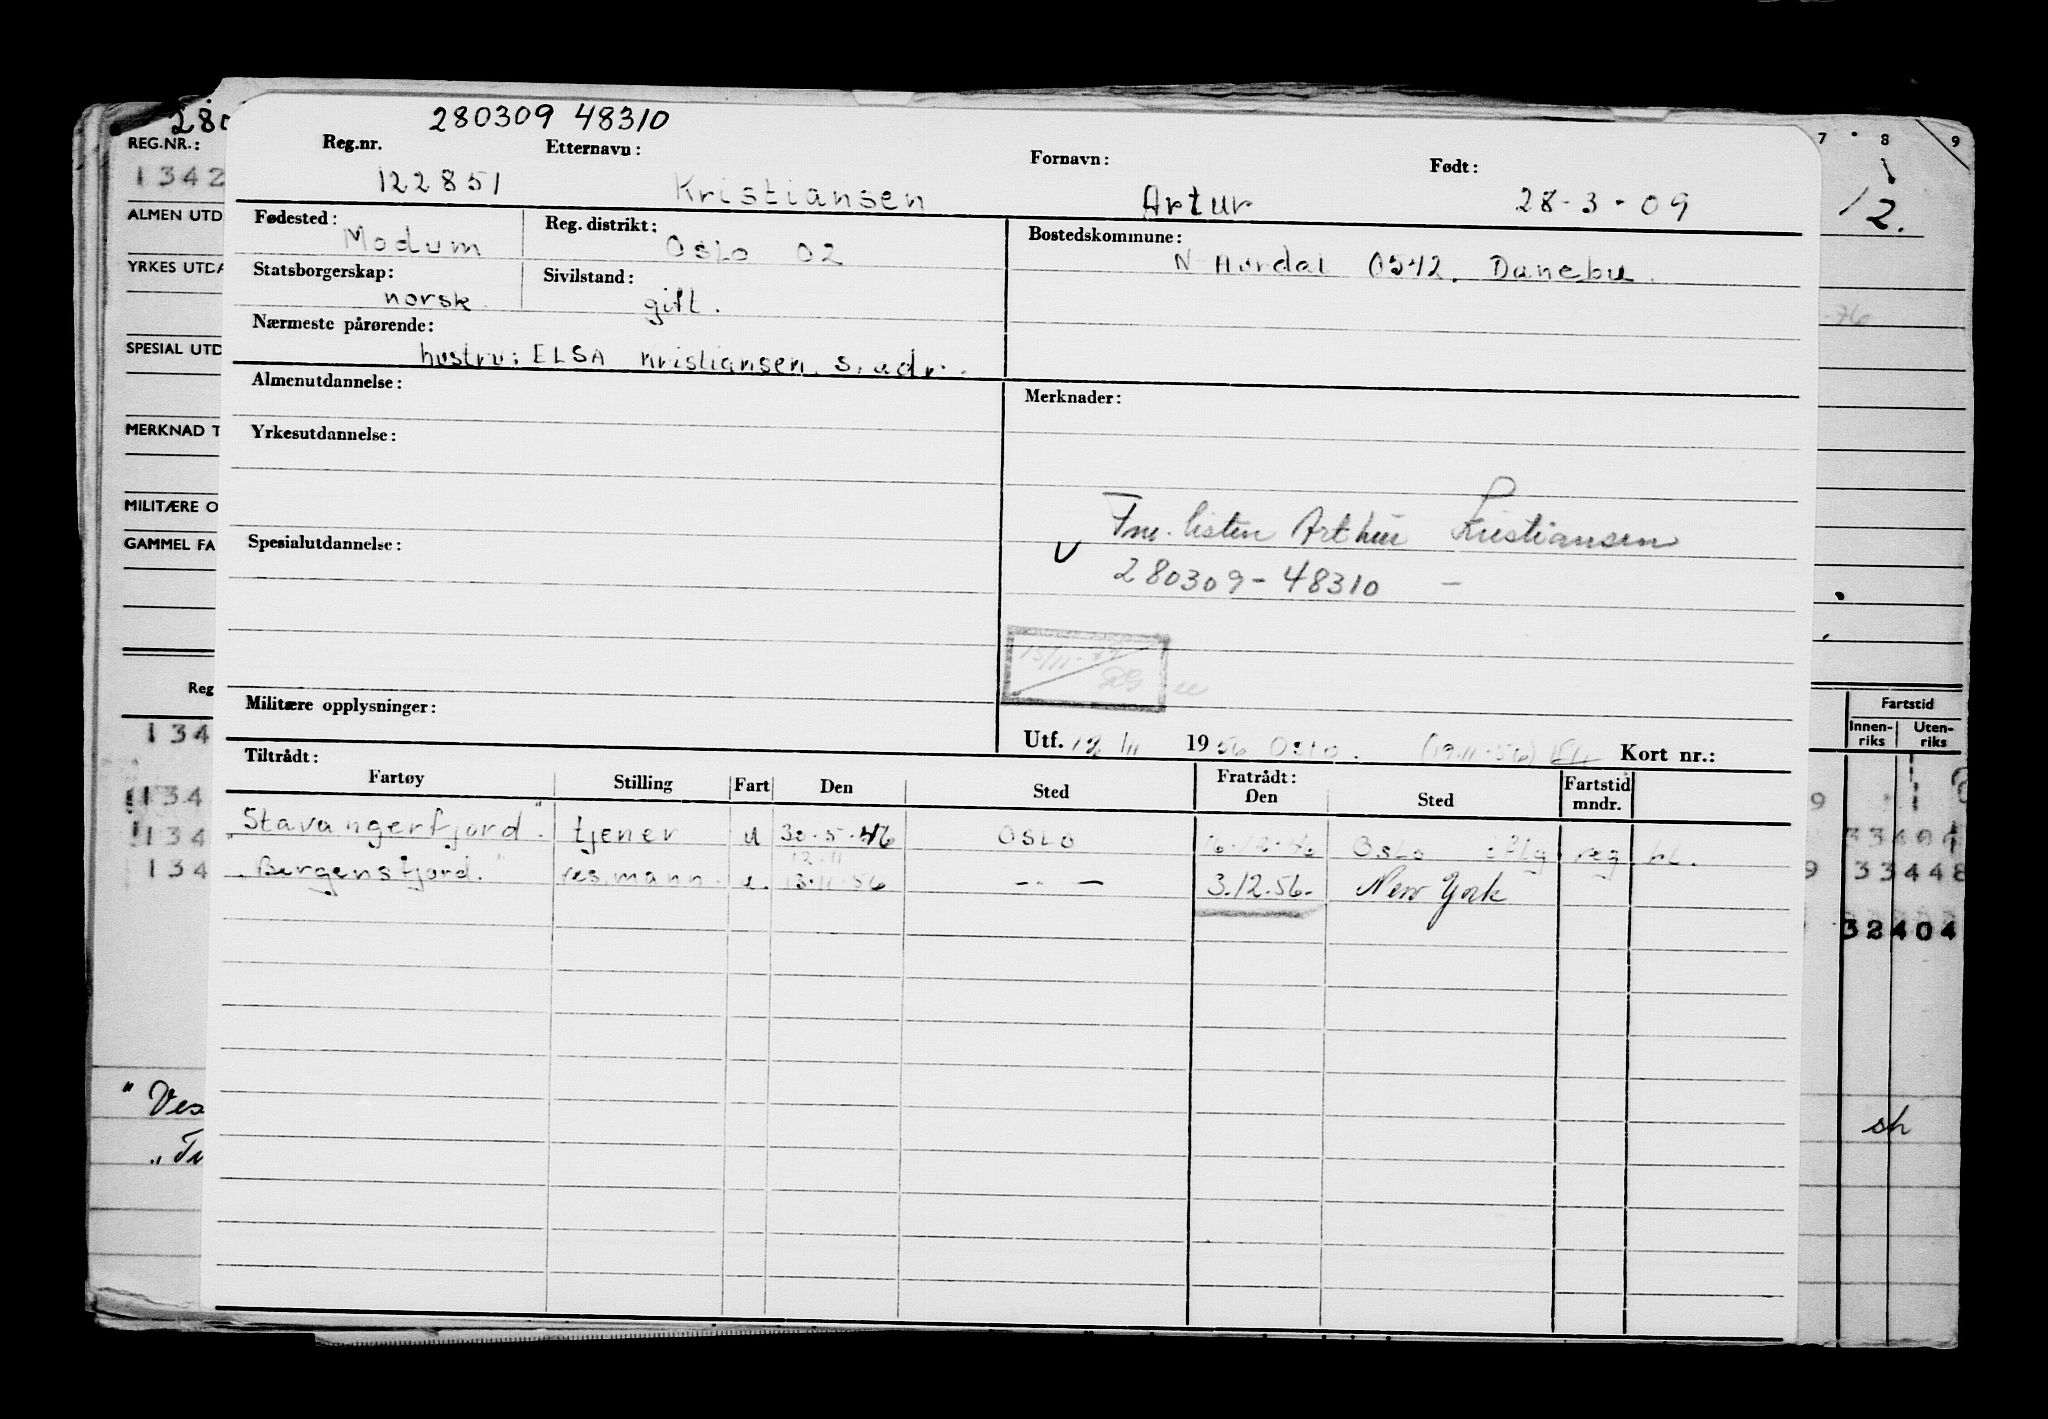 280309 48310
Reg.nr. Etternavn: Fornavn: Født:
122851 Kristiansen Artur 28-3-09
Fødested: Modum Reg. distrikt: Oslo 02 Bostedskommune:
N Aurdal 0542. Danebu.
Statsborgerskap: norsk. Sivilstand: gift.
Nærmeste pårørende:
hustru: ELSA Kristiansen. s. adr.
Almenutdannelse: Merknader:
Yrkesutdannelse:
Fnr. listen Arthur Kristiansen
Spesialutdannelse: 280309-48310 -
15/11-
Militære opplysninger:
Utf. 12/11 1956 Oslo. (19.11.56) Kort nr.:
Tiltrådt: Fratrådt: Fartstid
Fartøy Stilling Fart Den Sted Den Sted mndr.
"Stavangerfjord". tjener u 30.5.46 Oslo 16.12.46 Oslo iflg reg bl.
12.11
"Bergensfjord." res.mann. u. 13.11.56 — " — 3.12.56. New York
280
REG.NR.:
1342
ALMEN UTD
YRKES UTDA
SPESIAL UTD
MERKNAD T
MILITÆRE O
GAMMEL FA
Reg
134
134
134
134
" Ves
7 8 9
12.
-76
Fartstid
Innen-riks Uten-riks
9
33448
32404
sh